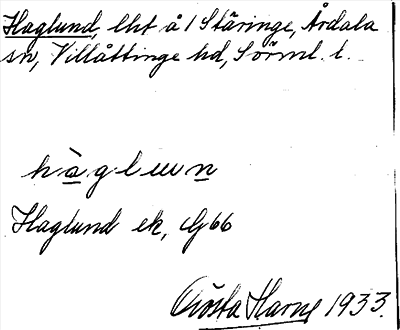 Haglund, lht å 1 Stäringe, Årdala
sn, Villåttinge hd, Sörml. l.
hàgluun
Haglund ek, G 66
Gösta Harne 1933.